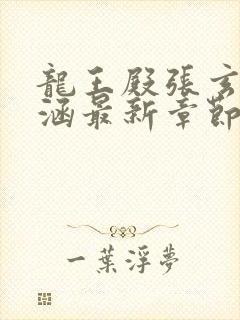 龍王殿張玄
涵最新章節
一葉浮夢